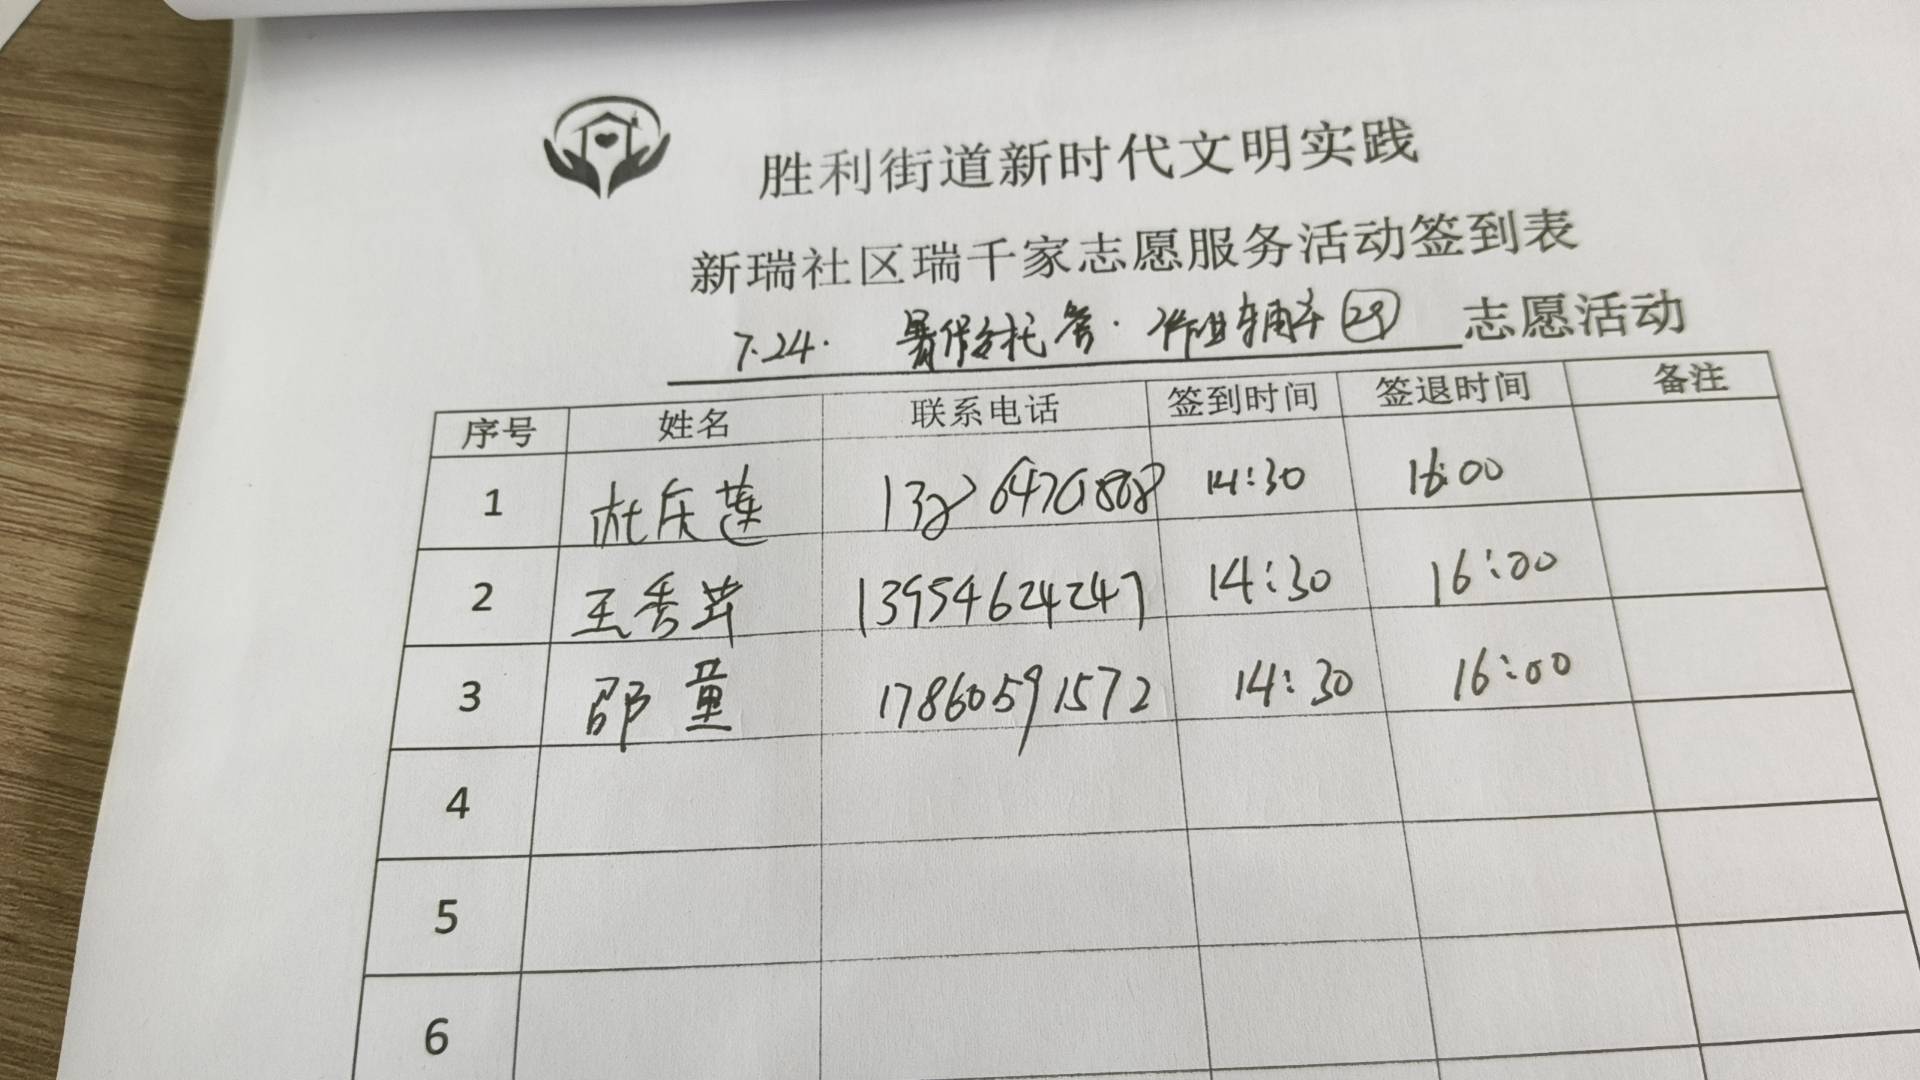 胜利街道新时代文明实践
新瑞社区瑞千家志愿服务活动签到表
7.24. 暑假托管·作业辅导(29) 志愿活动
序号 姓名 联系电话 签到时间 签退时间 备注
1 杜庆莲 14:30 16:00
2 王秀 13954624247 14:30 16:00
3 邵童 17860591572 14:30 16:00
4
5
6